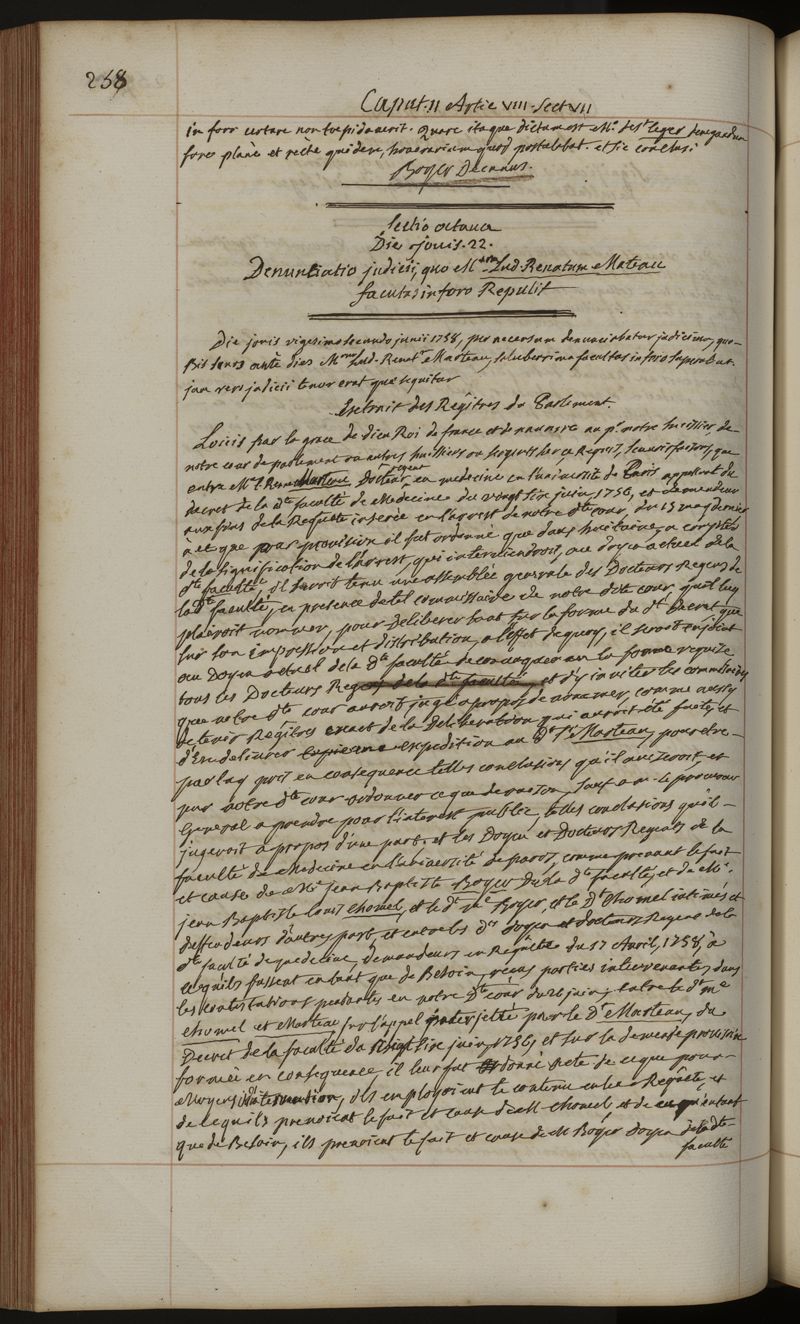 258
Caput. II Artic VIII. Sect VII
in foro certare non trepidaverit. Quare itaque dictum est Mo. des. leger denegandum
fores planè et rectè quidem, honorarium quod postulabat. et sic conclusi
Boyer Decanus.
Sectio octava
Die jovis. 22.
Denuntiatio judicii, quo Mum Lud. Renatum Mateau
facultas in foro Repulit
Die jovis vigesimo secundo junii 1758, per necersum denunciabatur judicium, quo
Mum Lud. Renat. Marteau, saluberrima facultas in foro superabat.
jam vero judicii tenor erat qui sequitur
Extrait des Régitres du Parlement.
Louis par la grace de dieu Roi de france et de navarre au pr. notre huissier de
notre cour de parlement ou autres huissiers ou sergents sur ce Requis, sçavoir faisons, que
entre Me L. Rene Marteau Docteur regent en medecine en l'université de Paris appellant du
decret de la dte faculté de Medecine du vingt six juin, 1756, et demandeur
aux fins de la Requete inserée en l'arrest de notre dte cour, du 15 may dernier
à ce que par provision il fut ordonné que dans huitaine, a compter
de la signification de l'arrest, qui interviendroit, au doyen actuel de la
dte faculté, il seroit tenu une assemblée generale des Docteurs Regens de
la dte faculté, en presence de tel commissaire de notre dte cour, qu'il luy
plairoit nommer, pour deliberer tant sur la forme du dt Decret que
sur son impression et distribution, a l'effet de quoy, il seroit enjoint
au Doyen actuel de la dte faculté de convoquer en la forme requise
tous les Docteurs Regens de la dte faculté et d'y inviter les commissaires
que notre dte cour auroit jugé a propos de nommer, comme aussy
de tenir Régitres exact de la Deliberation qui auroit été faite, et
d'en delivrer expedition au dt Sr Marteau, pour etre
par luy pris en consequence telles conclusions qu'il aviseroit, et
par notre dte cour ordonner ce que de raison, sauf a m. le procureur
General a prendre pour l'interest public, telles conclusions qu'il
jugeroit a propos d'une part. et les Doyen et Docteurs Regents de la
faculté de Medecine en l'université de paris, comme prenant le fait
et cause de Me jean Baptiste Boyer Doyen de la dte faculté, et de Me.
jean Baptiste Louis Chomel, et le dt me Boyer, et le Dt Chomel intimés et
deffendeurs d'autres part, et entre les dts doyen et docteurs Regens de la
dte faculté de medecine, demandeurs en Requête du 17 Avril, 1758, à
ce qu'ils fussent en tant que de Besoin, reçus parties intervenantes dans
les contestations pendantes en notre Dte cour du 26 juin, entre le dt me
Chomel et Marteau sur l'appel interjetté par le Dt Marteau, du
Decret de la faculté du vingt six juin, 1756, et sur la demande provisoire
formée en consequence, il leur fut donné acte de ce que pour
Moyens d'intervention, ils employoient le contenu en leur Requête, et
de ce qu'ils prenoient le fait et cause de M Chomel et de ce qu'en tant
que de Besoin, ils prenoient le fait et cause de M Boyer doyen de la dte
faculté